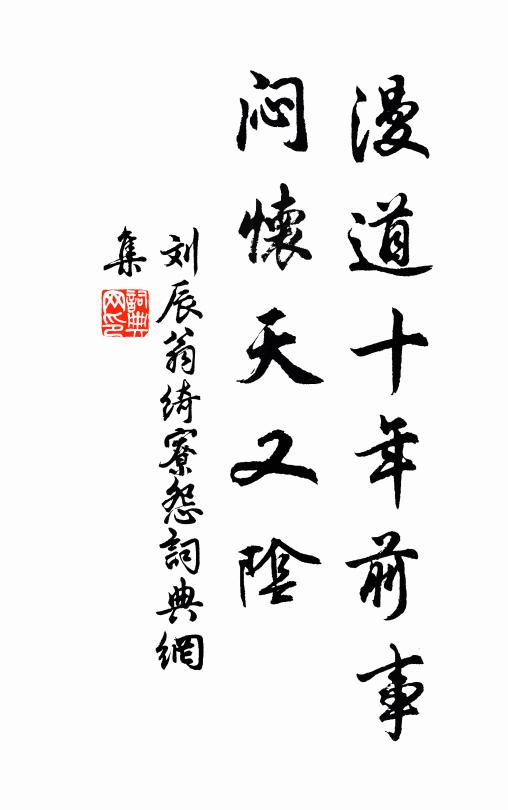 漫道十年前事
闷懷天又陰
刘辰翁绮寮怨詞典網
集
詞典网印